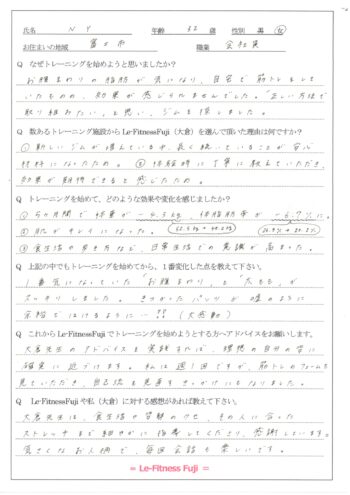 氏名 N Y 年齢 32 歳 性別 男 女
お住まいの地域 富士市 職業 会社員
Q なぜトレーニングを始めようと思いましたか?
お腹まわりの脂肪が気になり、自宅で筋トレをして
いたものの、効果が感じられませんでした。"正しい方法で
取り組みたい"と思い、ジムを探しました。
Q 数あるトレーニング施設からLe-FitnessFuji(大倉)を選んで頂いた理由は何ですか?
① 新しいジムが増えている中、長く続いていることが安心
材料になったため。 ② 体験時に丁寧に教えていただき、
効果が期待できると感じたため。
Q トレーニングを始めて、どのような効果や変化を感じましたか?
① 5ヶ月間で体重が -4.3kg、体脂肪率が -6.7%に。
② 肌がキレイになった。
③ 食生活や歩き方など、日常生活での意識が高まった。
Q 上記の中でもトレーニングを始めてから、1番変化した点を教えて下さい。
1番気になっていた「お腹まわり」と「太もも」が
スッキリしました。きつかったパンツが嘘のように
余裕ではけるように…!! (大感動)
Q これからLe-FitnessFujiでトレーニングを始めようとする方へアドバイスをお願いします。
大倉先生のアドバイスを実践すれば、理想の自分の姿に
確実に近づけます。私は週1回ですが、筋トレのフォームを
見ていただき、自己流を見直すきっかけにもなりました。
Q Le-FitnessFujiや私(大倉)に対する感想があれば教えて下さい。
大倉先生は、食生活や姿勢のクセ、その人に合った
ストレッチまで細やかに指導してくださり、感謝しています。
気さくなお人柄で、毎回会話も楽しいです。
= Le-Fitness Fuji =